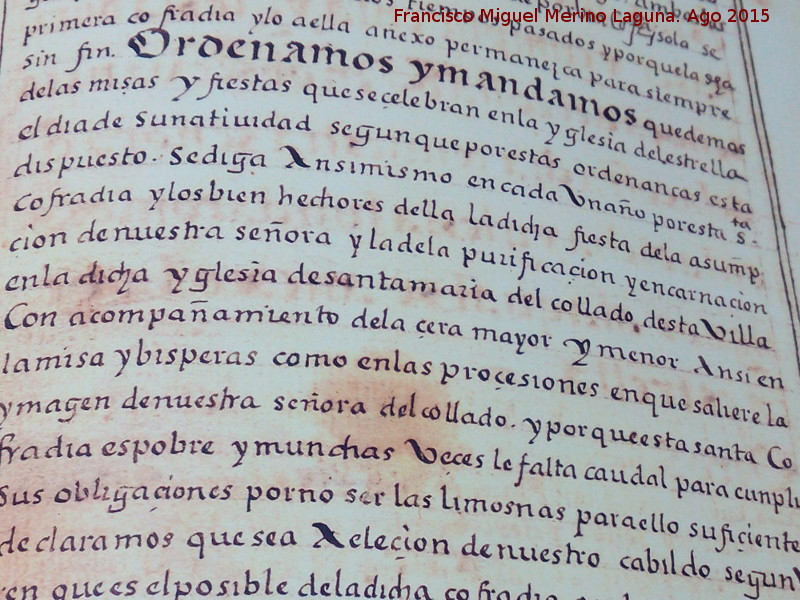 Francisco Miguel Merino Laguna. Ago 2015
tiempos pasados y porque la sea
primera cofradia ylo aella anexo permanezca para siempre
sin fin. Ordenamos ymandamos quedemas
delas misas y fiestas quesecelebran enla yglesia delestrella
el diade sunatiuidad segunqueporestas ordenanças esta
dispuesto. sediga Ansimismo encada Vnaño poresta sta.
cofradia ylosbien hechores della ladicha fiesta dela asump
cion denuestra señora yladela purificaçion yencarnaçion
enla dicha yglesia desantamaria del collado destaVilla
Con acompañamiento dela çera mayor y menor Ansi en
lamisa ybisperas como enlas proçesiones enque saliere la
ymagen denuestra señora delcollado. yporqueesta santa Co
fradia espobre ymunchas Veces le falta caudal para cunpli
sus obligaçiones porno ser las limosnas paraello sufiçiente
declaramos quesea Xeleçion denuestro cabildo segun
en quees elposible deladicha cofradia